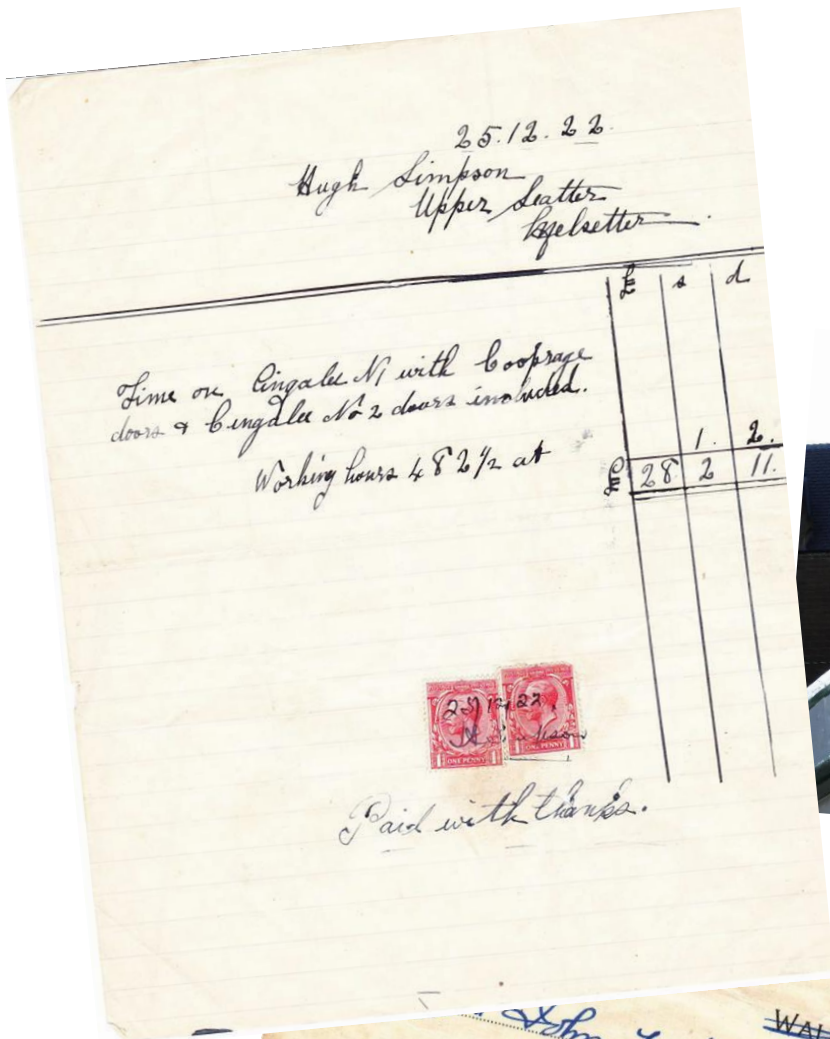 25.12.22.
Hugh Simpson
Upper Seatter
Lyelsetter.
£ s d
Time on Cingalee N1 with Cooprage
doors & Cingalee No 2 doors included.
1. 2.
Working hours 482 1/2 at
£ 28. 2 11.
25/12/22.
ONE PENNY
ONE PENNY
Paid with thanks.
John